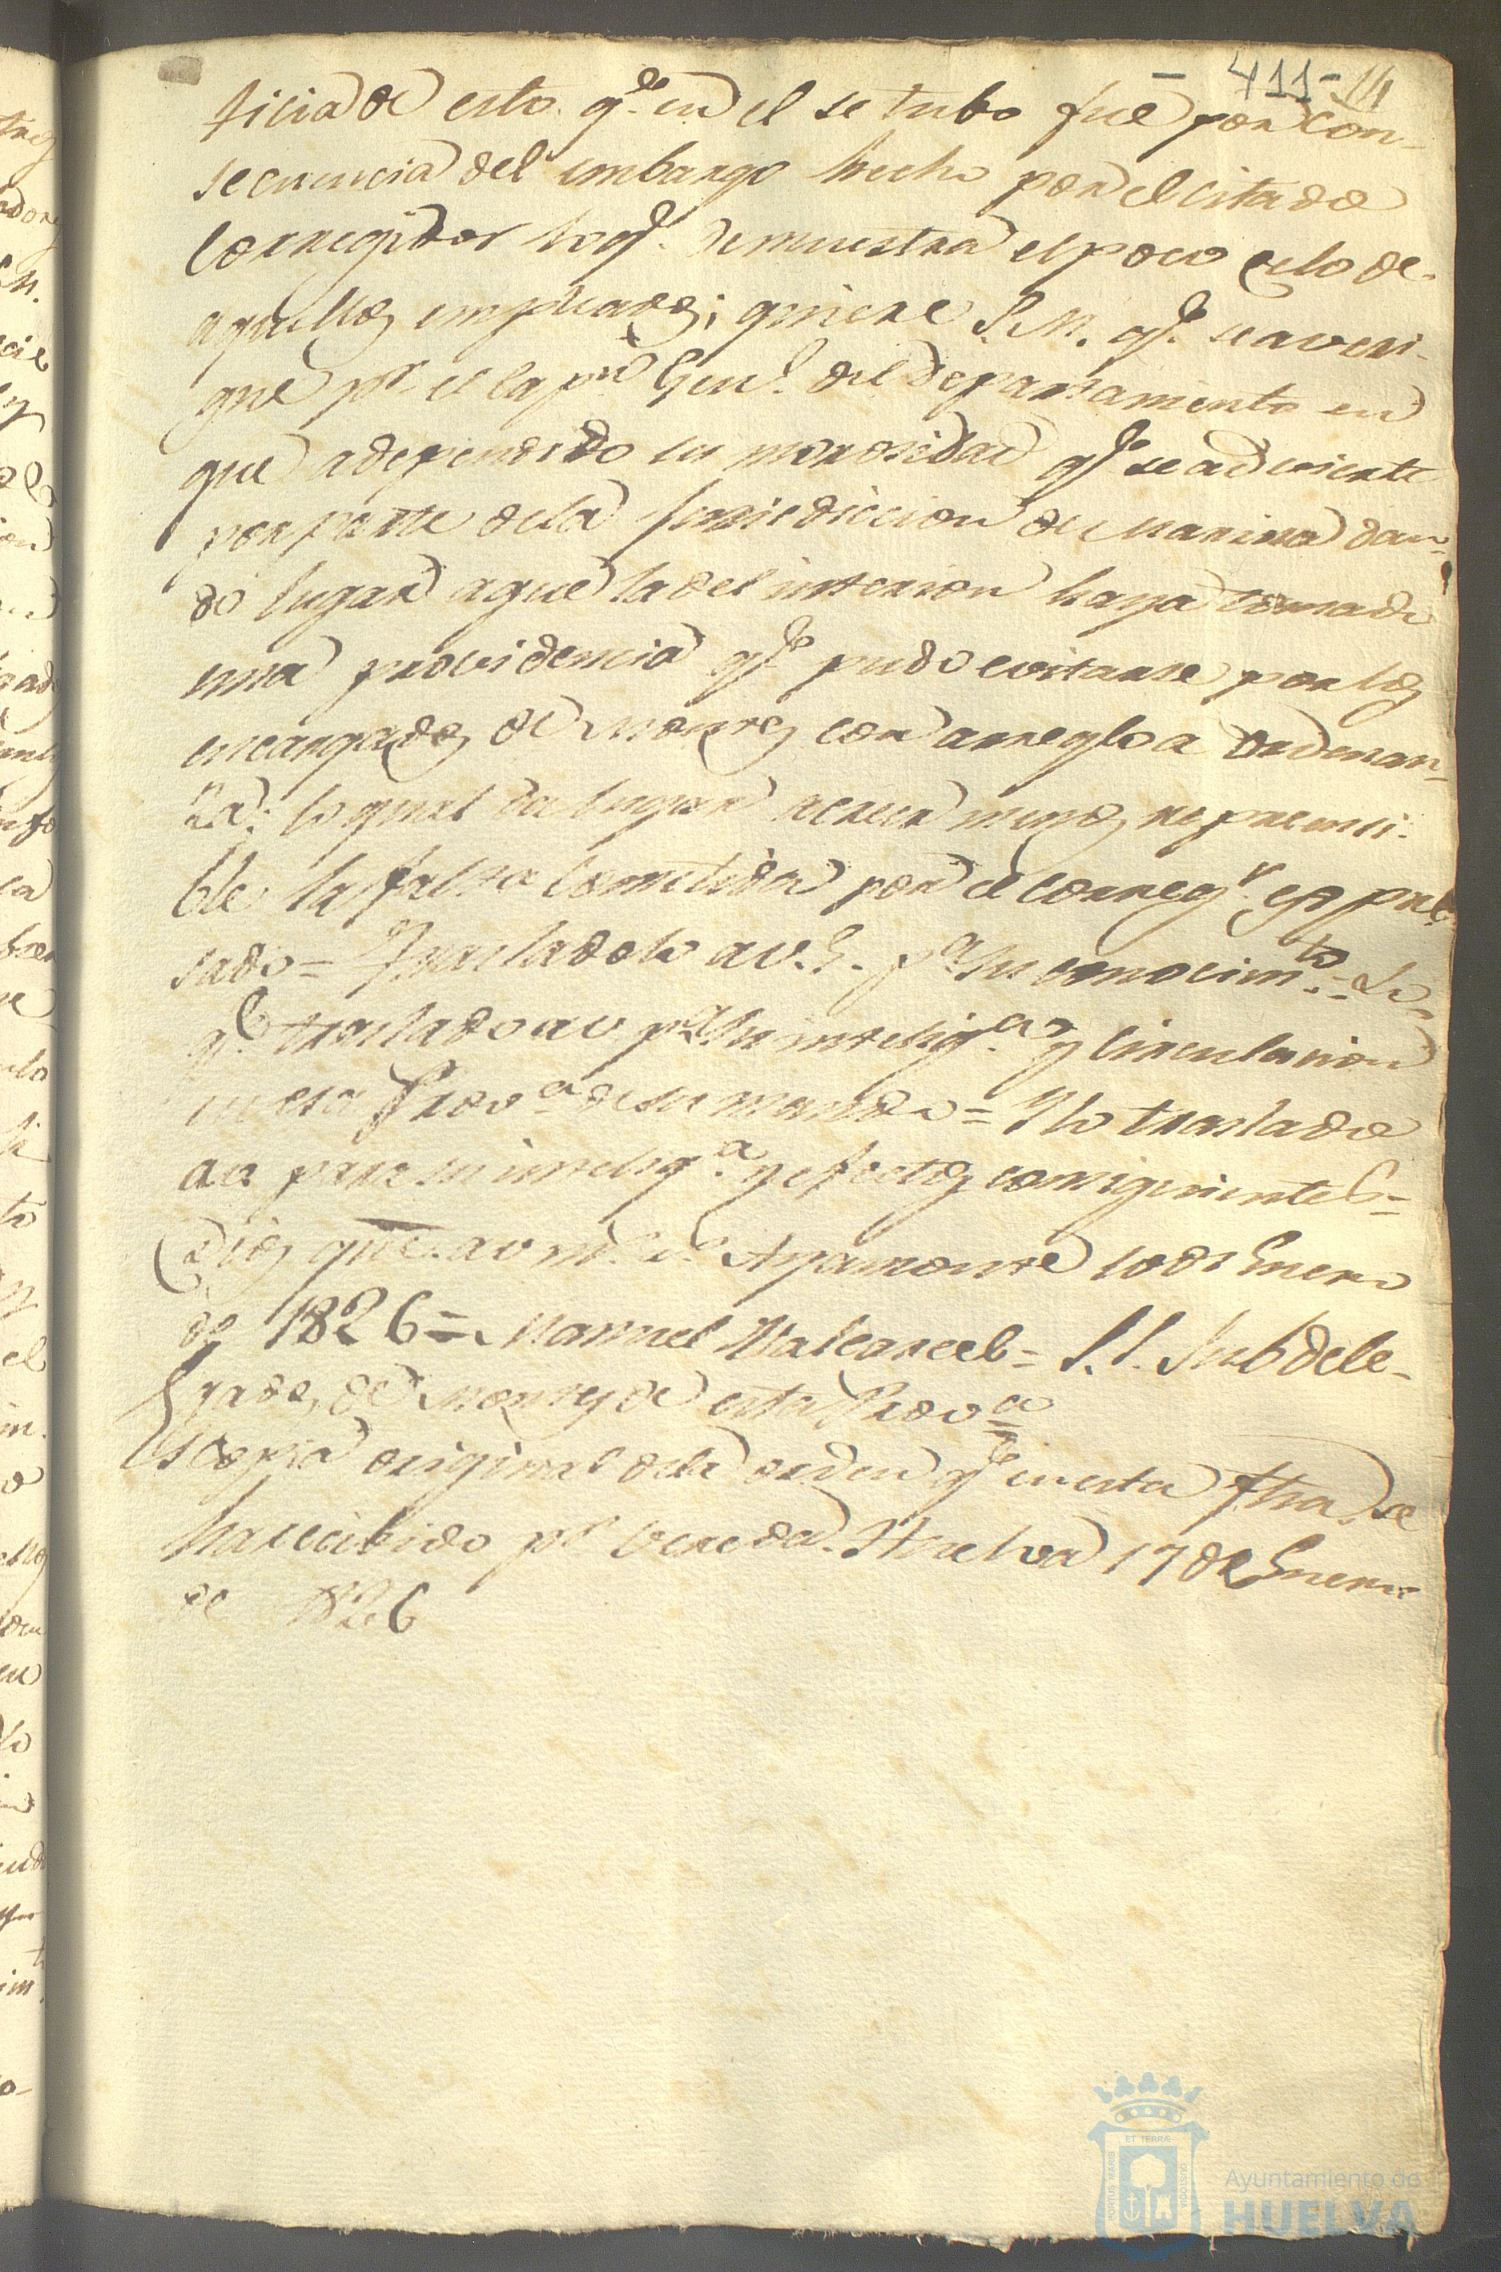 - 411 - 14
ticia de esto q.e en el se tubo fue por con-
secuencia del embargo hecho por el citado
Corregidor lo q.e demuestra el poco celo de
aquellos empleados; quiere S.M. q.e se averi-
gue p.r el Cap.n Gen.l del Departamento en
que a dependido su morosidad q.e se advierte
por parte dela Jurisdiccion de Marina dan-
do lugar a que la del interior haya tomado
una providencia q.e pudo evitarse por los
encargados de Montes con arreglo a ordenan-
za; lo qual da lugar a creer menos reprensi-
ble la falta cometida por el correg.r espre-
sado = Trasladolo a V.E. p.a su conocim.to = Lo
q.e traslado a V p.a su intelig.a y circulacion
en esa Prov.a de su mando = Y lo traslado
a V para su intelig.a y efectos consiguientes =
Dios gue. a V m.s a.s Ayamonte 10 de Enero
de 1826 = Manuel Valcarcel = S.S. Subdele-
gados de Montes de esta Prov.a
Es copia original dela orden q.e en esta fha se
ha recibido p.r vereda. Huelva 17 de Enero
de 1826
ET TERRÆ
PORTUS MARIS
CUSTODIA
Ayuntamiento de
HUELVA